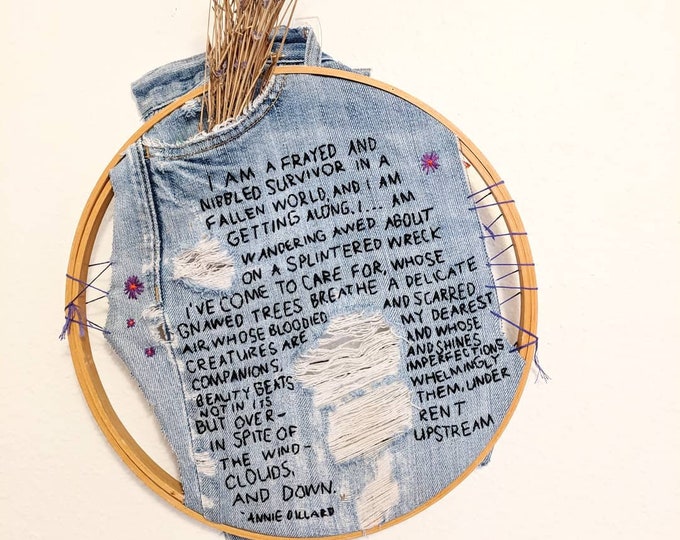 I AM A FRAYED AND
NIBBLED SURVIVOR IN A
FALLEN WORLD, AND I AM
GETTING ALONG. I... AM
WANDERING AWED ABOUT
ON A SPLINTERED WRECK
I'VE COME TO CARE FOR, WHOSE
GNAWED TREES BREATHE A DELICATE
AIR, WHOSE BLOODIED AND SCARRED
CREATURES ARE MY DEAREST
COMPANIONS, AND WHOSE
BEAUTY BEATS AND SHINES
NOT IN ITS IMPERFECTIONS
BUT OVER- WHELMINGLY
IN SPITE OF THEM, UNDER
THE WIND- RENT
CLOUDS, UPSTREAM
AND DOWN.
-ANNIE DILLARD